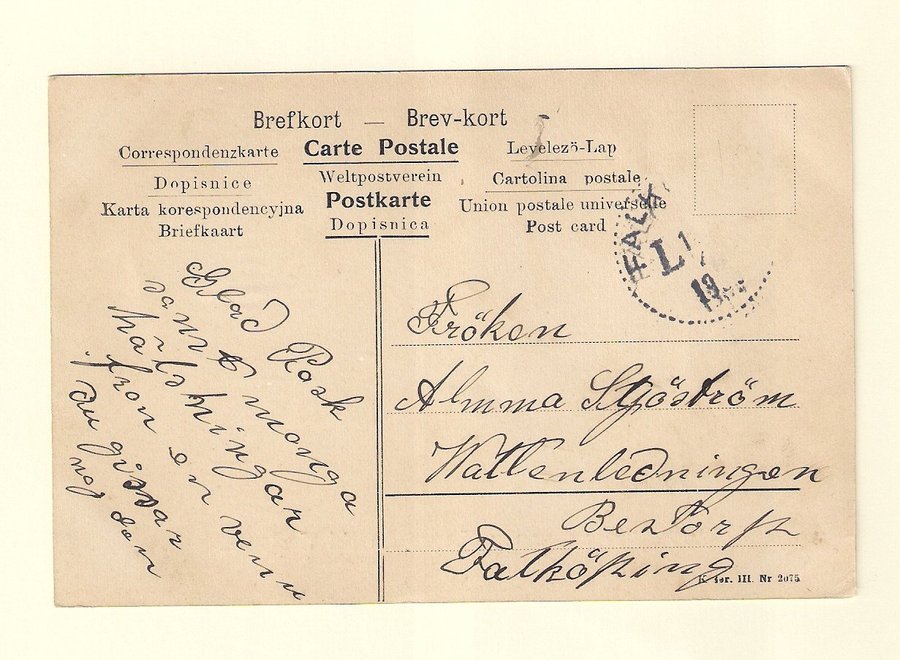 Brefkort — Brev-kort
Correspondenzkarte Carte Postale Levelezö-Lap
Dopisnice Weltpostverein Cartolina postale
Karta korespondencyjna Postkarte Union postale universelle
Briefkaart Dopisnica Post card
FALK
L 1
19
Glad Påsk
samt monga
hälsningar
från en venn
du gissar
nog den
Fröken
Almma Sjöström
Wattenledningen
Falköping
K. ser. III. Nr 2075